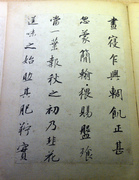 晝寢乍興輖飢正甚
忽蒙簡翰猥賜盤飧
當一葉報秋之初乃韭花
逞味之始助其肥羜實